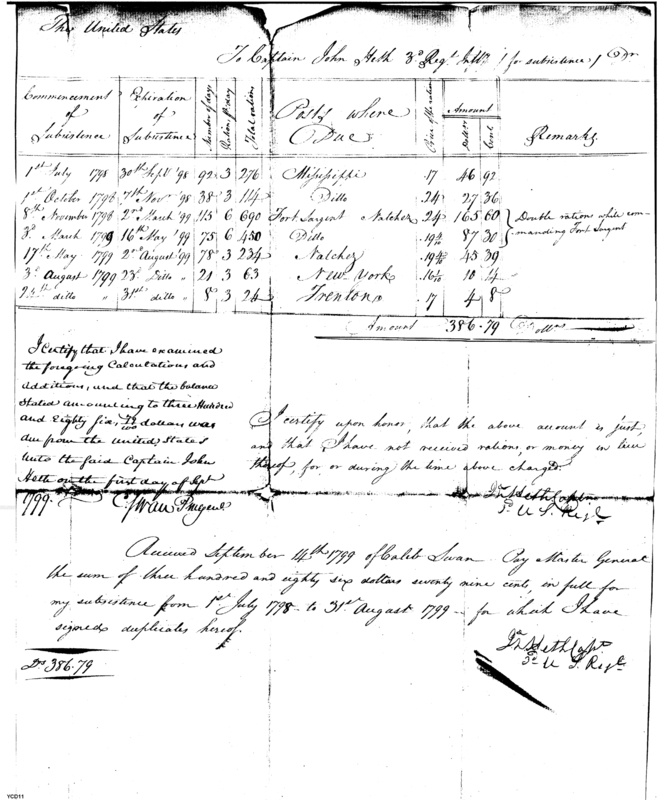 The United States
To Captain John Heth 3d Regt Infty for subsistence Dr
Commencement of Subsistence | Expiration of Subsistence | Number of days | Rations p day | Total rations | Posts where Due | Price of the ration | Amount Dollars Cents | Remarks
1st July 1798 | 30th Sept '98 | 92 | 3 | 276 | Missisippi | 17 | 46 | 92
1st October 1798 | 7th Nov '98 | 38 | 3 | 114 | Ditto | 24 | 27 | 36
8th November 1798 | 2nd March '99 | 115 | 6 | 690 | Fort Sargent Natchez | 24 | 165 | 60 | Double rations while com-
3d March 1799 | 16th May '99 | 75 | 6 | 450 | Ditto | 87 | 30 | manding Fort Sargent
17th May 1799 | 2nd August '99 | 78 | 3 | 234 | Natchez | 45 | 39
3d August 1799 | 23d Ditto " | 21 | 3 | 63 | New York | 16 1/10 | 10 | 14
24th ditto " | 31st ditto " | 8 | 3 | 24 | Trenton | 17 | 4 | 8
Amount 386.79 Dolls
I certify that I have examined
the foregoing Calculations and
additions, and that the balance
Stated amounting to three Hundred
and Eighty six 79/100 dollars was
due from the United States
unto the said Captain John
Heth on the first day of Sept
1799.
C Swan P M Genl
I certify upon honor, that the above account is just,
and that I have not received rations, or money in lieu
thereof, for or during the time above charged.
Jn Heth Capt
3d U S Regt
Received September 14th 1799 of Caleb Swan Pay Master General
the sum of three hundred and eighty six dollars seventy nine cents, in full for
my subsistence from 1st July 1798 to 31st August 1799 for which I have
signed duplicates hereof.
Jn Heth Capt
3d U S Regt
Ds 386.79
YCD11